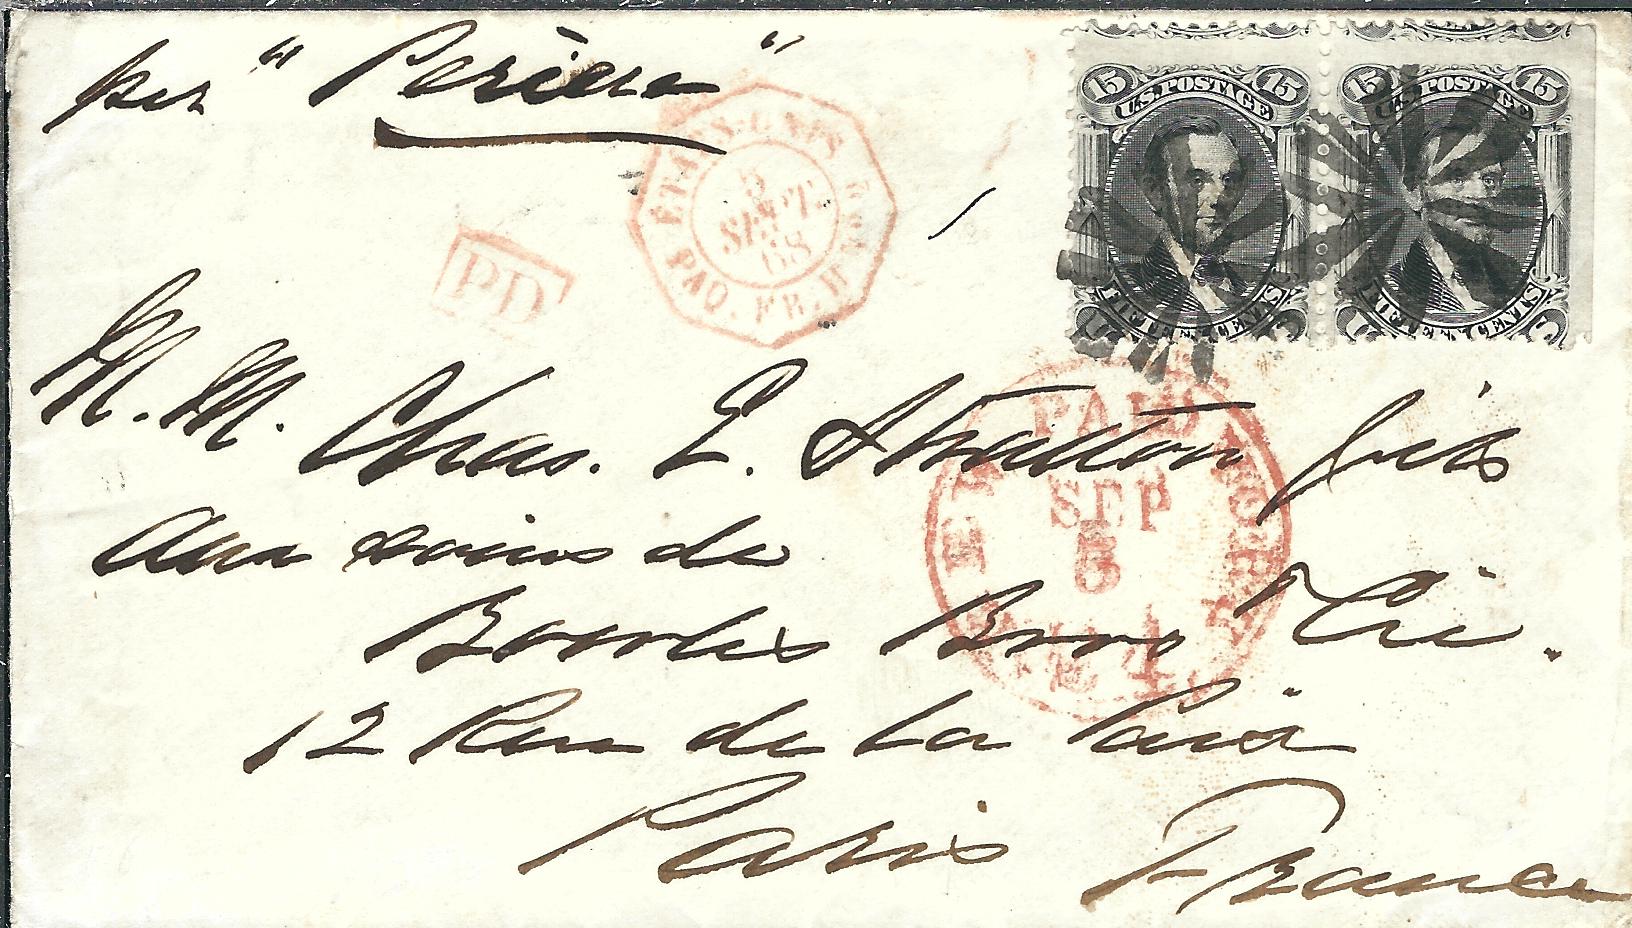 per "Pereire"
ETATS-UNIS
5
SEPT.
68
PAQ. FR. H
PD
15 U.S. POSTAGE 15
FIFTEEN CENTS
15 U.S. POSTAGE 15
FIFTEEN CENTS
M.M. Chas. E. Stratton fils
PAID
SEP
5
Aux soins de
Bowles Bros & Cie.
12 Rue de la Paix
Paris France